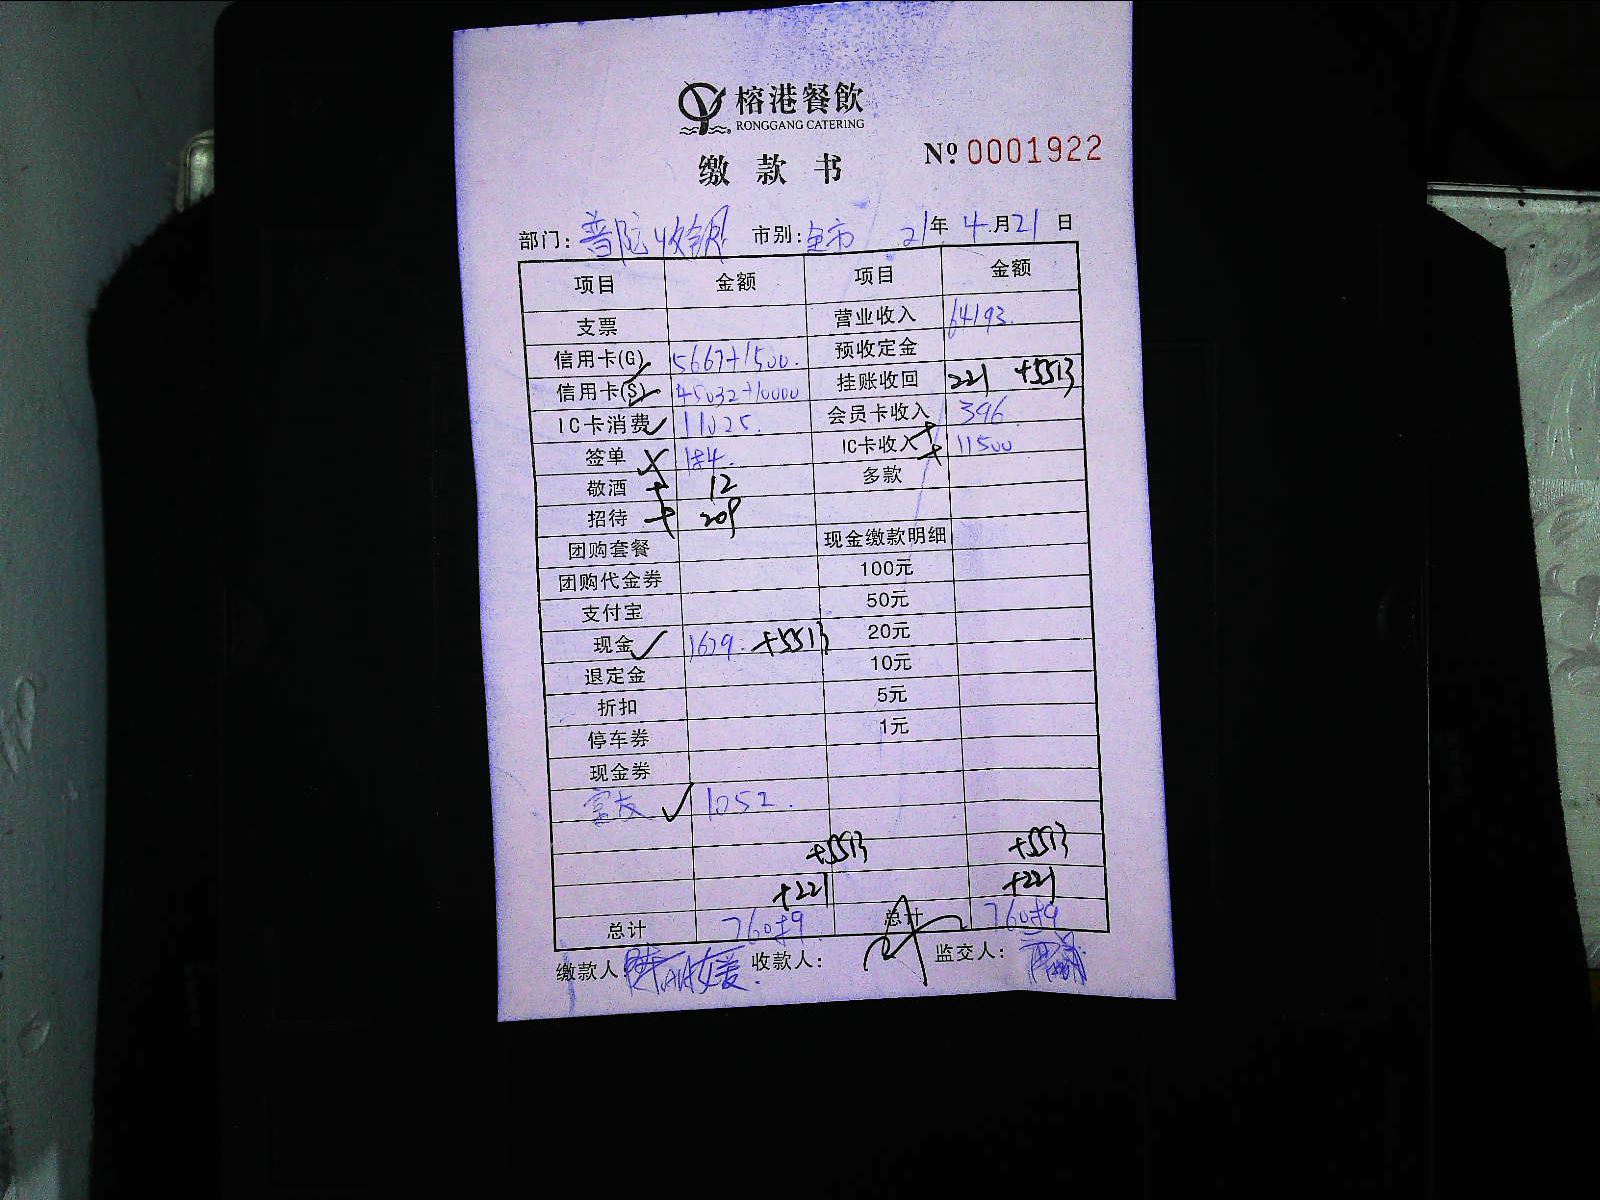 榕港餐飲
RONGGANG CATERING
缴款书 № 0001922
部门: 普陀收银 市别: 全市 21年 4月21日
项目 金额 项目 金额
支票 营业收入 64193.
信用卡(G) 5667+1500. 预收定金
信用卡(S) 45032+10000 挂账收回 221 +5513
IC卡消费 11025. 会员卡收入 396
签单 184. IC卡收入 11500
敬酒 12 多款
招待 209
团购套餐 现金缴款明细
团购代金券 100元
支付宝 50元
现金 1629. +5513 20元
退定金 10元
折扣 5元
停车券 1元
现金券
富友 1052.
+5513 +5513
+221 +221
总计 76089. 总计 76089
缴款人: 收款人: 监交人: